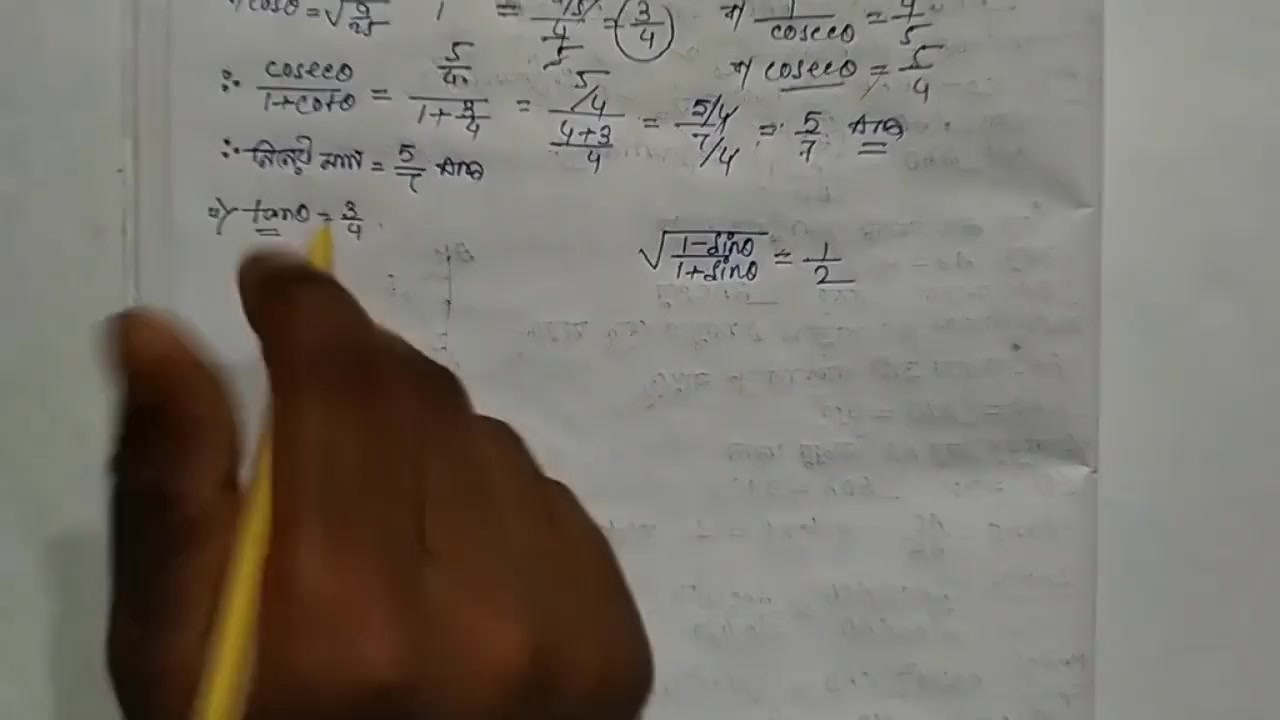 cosθ = √9/25 = 3/4 ⇒ 1/cosecθ = 4/5
⇒ cosecθ = 5/4
∴ cosecθ/1+cotθ = 5/4/1+3/4 = 5/4/4+3/4 = 5/4/7/4 = 5/7 Ans
∴ নির্ণেয় মান = 5/7 Ans
⇒ tanθ = 3/4
√1-sinθ/1+sinθ = 1/2